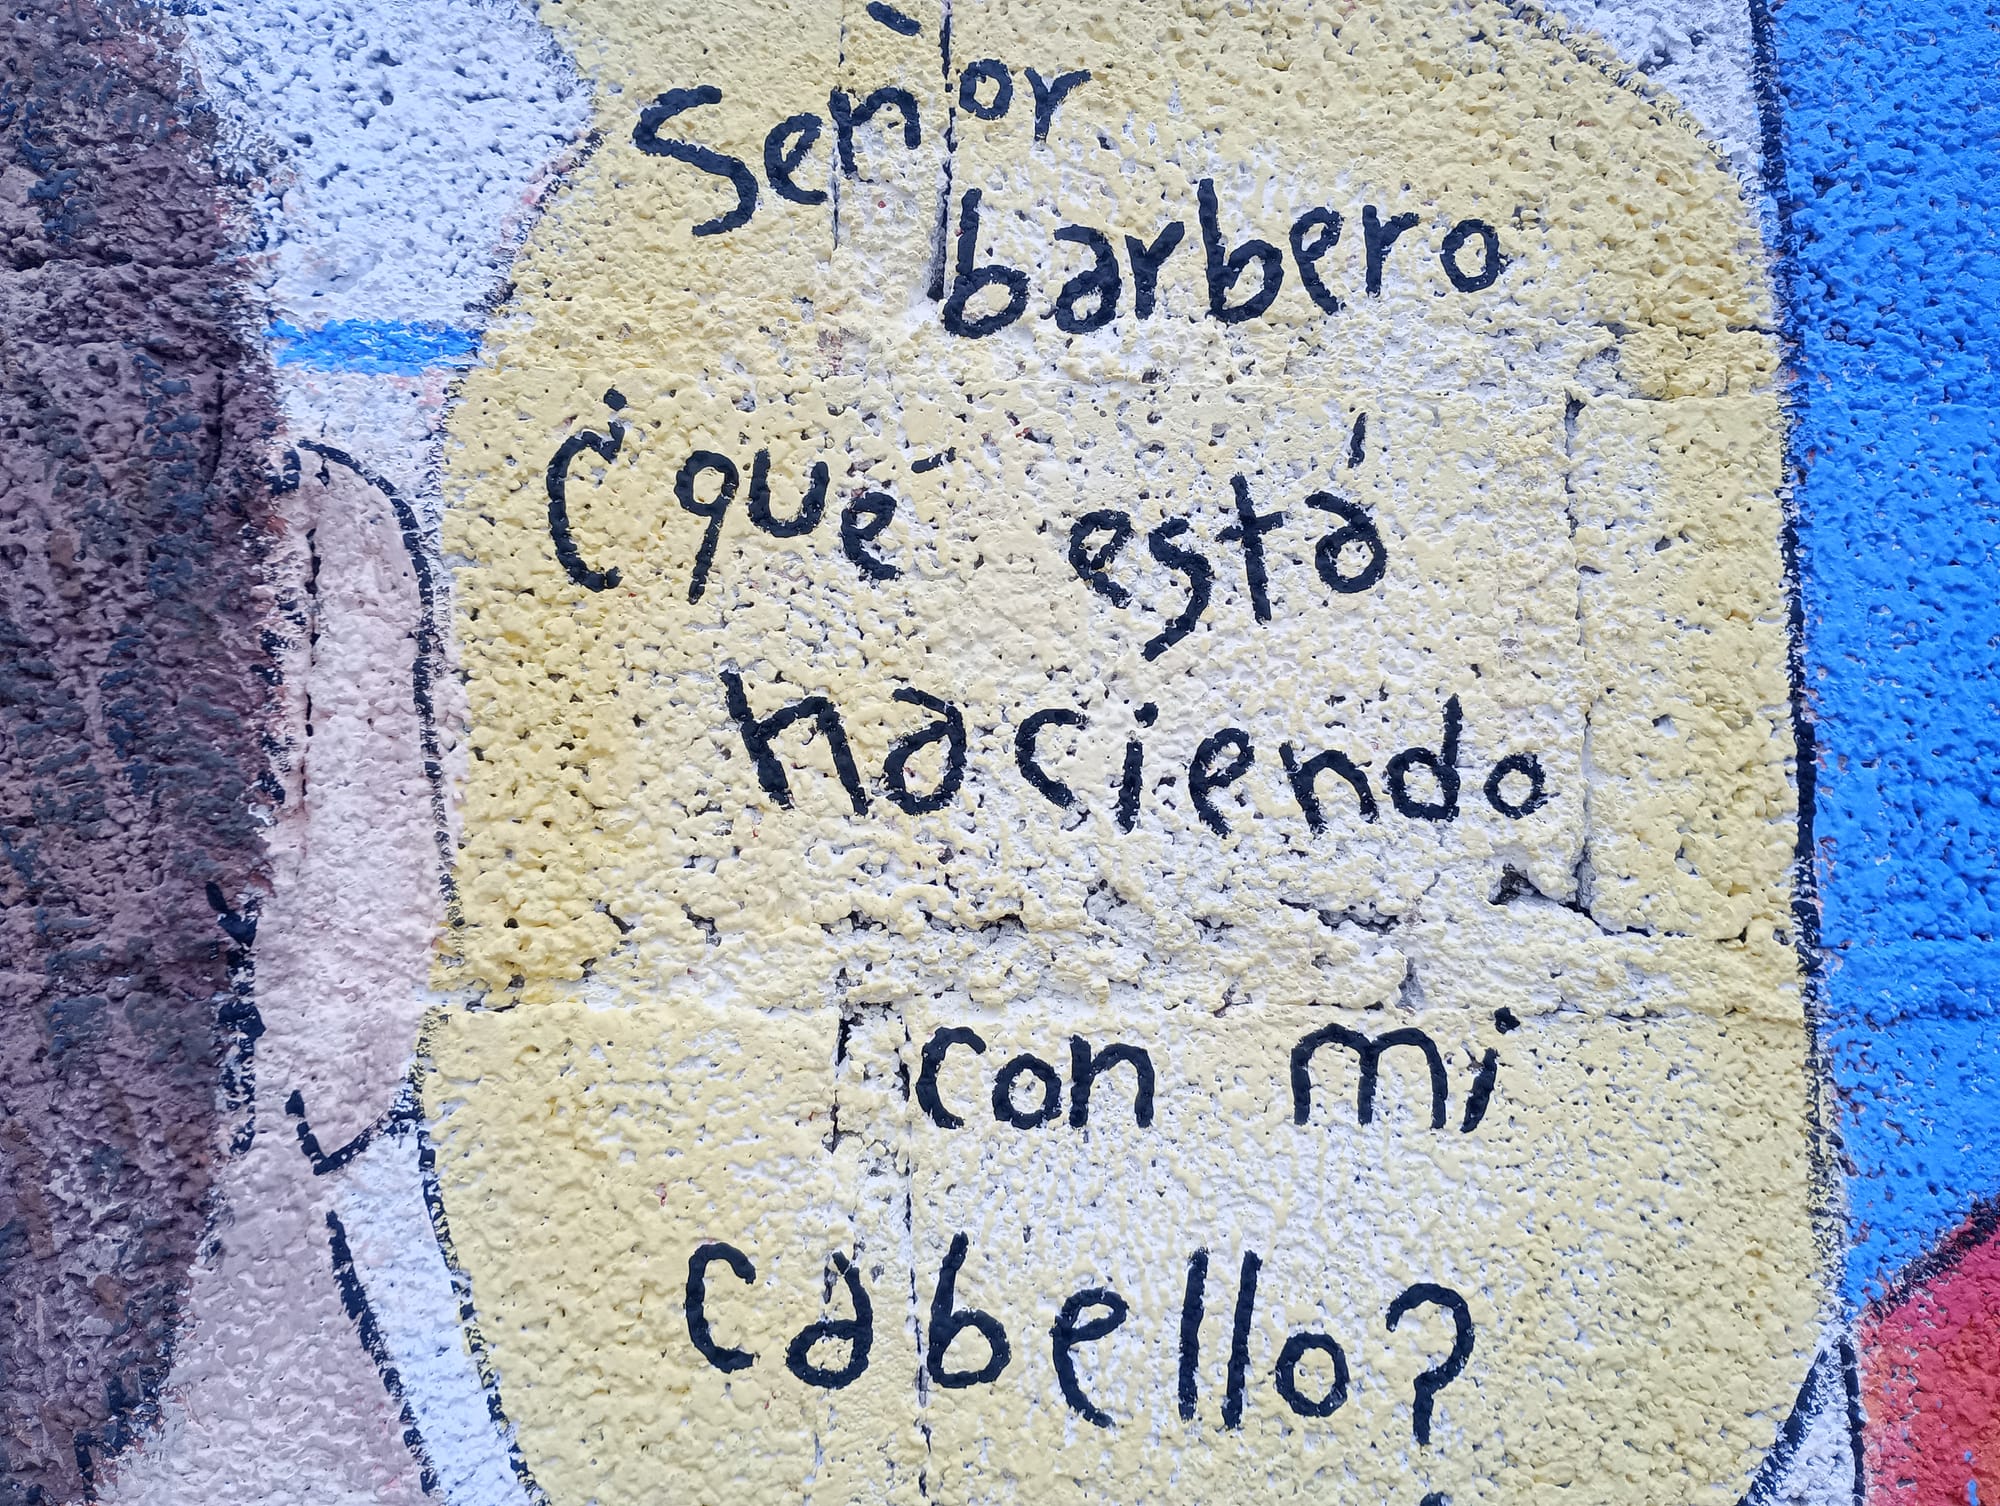 Señor
barbero
¿qué está
haciendo
con mi
cabello?